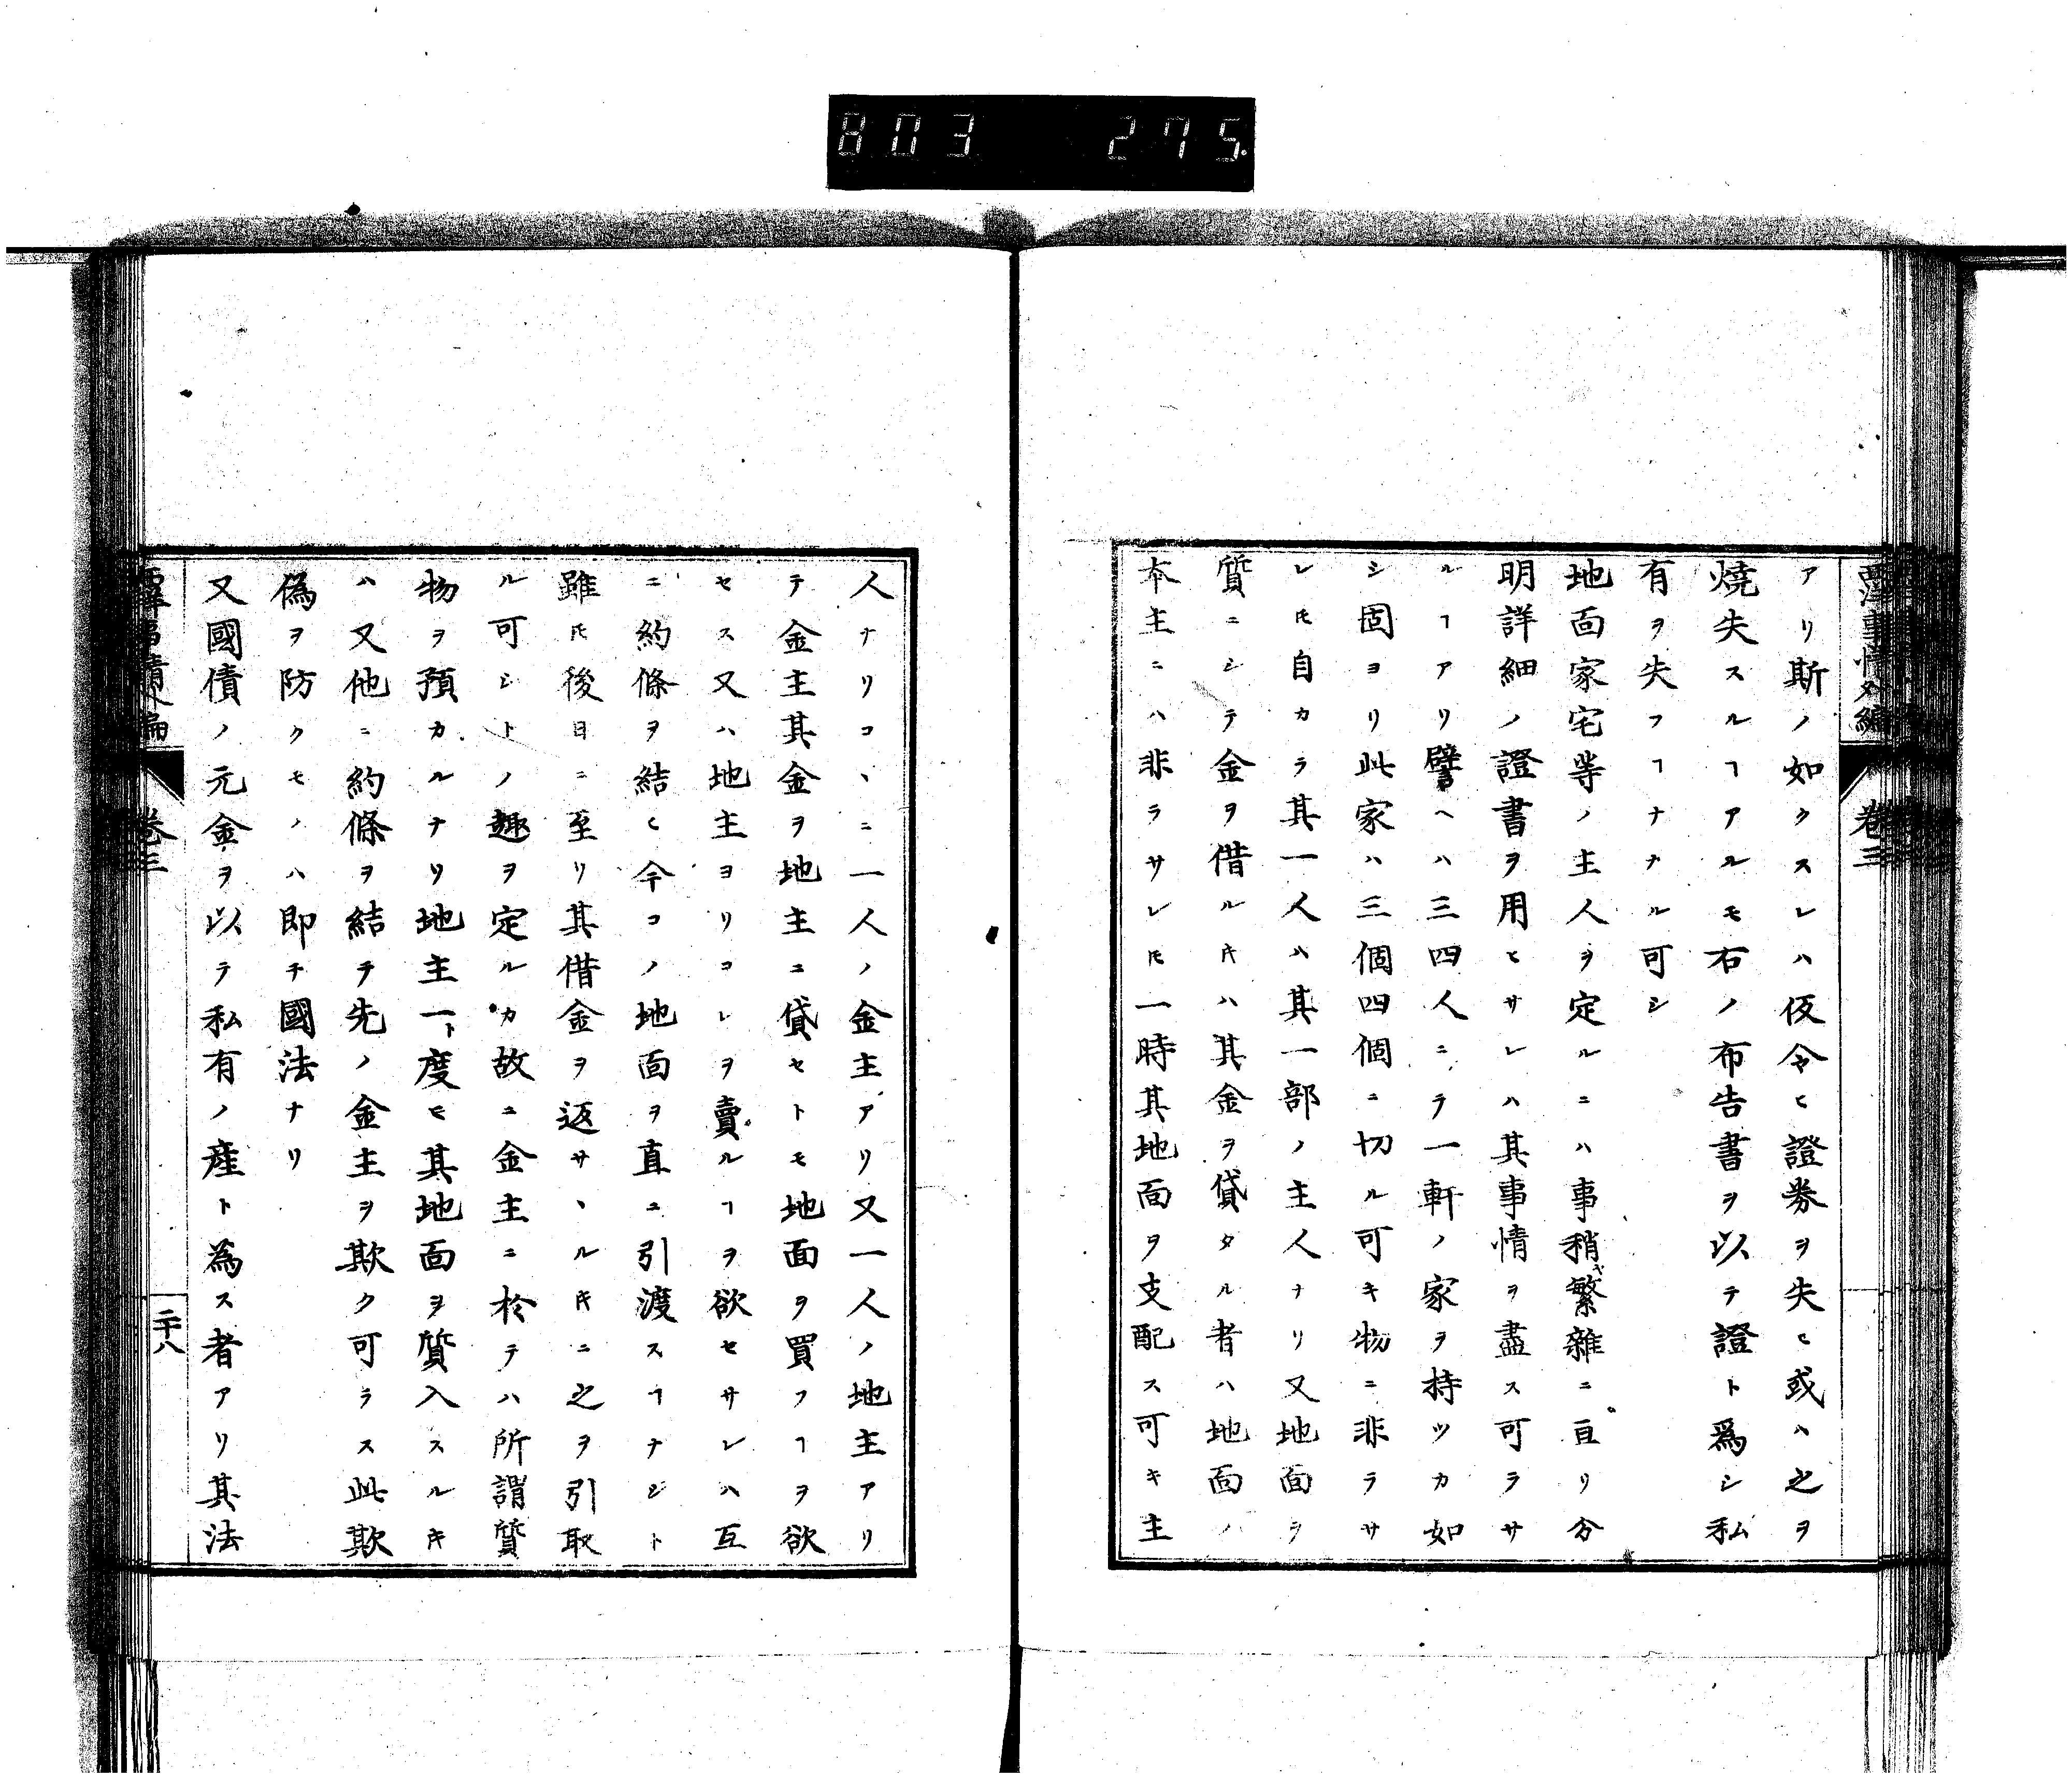 803 275
西洋事情外編 卷三
アリ斯ノ如クスレハ仮令ヒ證券ヲ失ヒ或ハ之ヲ
焼失スルヿアルモ右ノ布告書ヲ以テ證ト為シ私
有ヲ失フヿナナル可シ
地面家宅等ノ主人ヲ定ルニハ事稍ヤ繁雜ニ亘リ分
明詳細ノ證書ヲ用ヒサレハ其事情ヲ盡ス可ラサ
ルヿアリ譬ヘハ三四人ニテ一軒ノ家ヲ持ツカ如
シ固ヨリ此家ハ三個四個ニ切ル可キ物ニ非ラサ
レ𪜈自カラ其一人ハ其一部ノ主人ナリ又地面ヲ
質ニシテ金ヲ借ルキハ其金ヲ貸タル者ハ地面ノ
本主ニハ非ラサレ𪜈一時其地面ヲ支配ス可キ主
人ナリコヽニ一人ノ金主アリ又一人ノ地主アリ
テ金主其金ヲ地主ニ貸セトモ地面ヲ買フヿヲ欲
セス又ハ地主ヨリコレヲ賣ルヿヲ欲セサレハ互
ニ約條ヲ結ヒ今コノ地面ヲ直ニ引渡スヿナシト
雖𪜈後日ニ至リ其借金ヲ返サヽルキニ之ヲ引取
ル可シトノ趣ヲ定ルカ故ニ金主ニ於テハ所謂質
物ヲ預カルナリ地主一ト度ヒ其地面ヲ質入スルキ
ハ又他ニ約條ヲ結テ先ノ金主ヲ欺ク可ラス此欺
偽ヲ防クモノハ即チ國法ナリ
又國債ノ元金ヲ以テ私有ノ産ト為ス者アリ其法
卷三
二十八